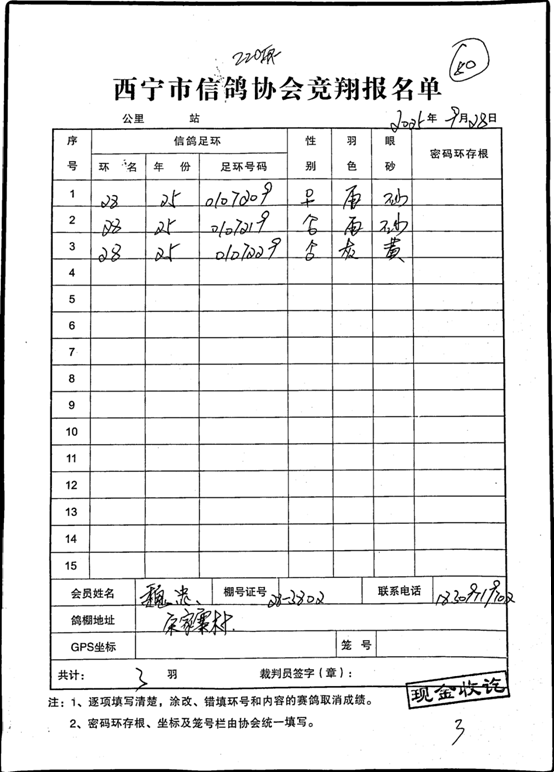 220部
50
西宁市信鸽协会竞翔报名单
公里 站 2025年 9月28日
序号 信鸽足环 性别 羽色 眼砂 密码环存根
环名 年份 足环号码
1 28 25 0107209 雨
2 28 25 0107219 雨
3 28 25 0107229 灰 黄
4
5
6
7
8
9
10
11
12
13
14
15
会员姓名 魏忠 棚号证号 28-3802 联系电话
鸽棚地址
GPS坐标 笼号
共计: 3 羽 裁判员签字(章):
现金收讫
注:1、逐项填写清楚,涂改、错填环号和内容的赛鸽取消成绩。
2、密码环存根、坐标及笼号栏由协会统一填写。
3